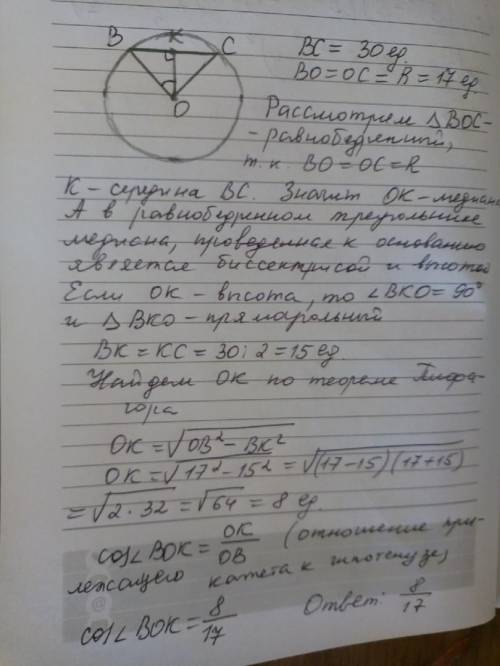 B K C
O
BC = 30 ед.
BO = OC = R = 17 ед
Рассмотрем △BOC-
- равнобедренный,
т.к. BO = OC = R
K - середина BC. Значит OK - медиана
А в равнобедренном треугольнике
медиана, проведенная к основанию
является биссектрисой и высотой
Если OK - высота, то ∠BKO = 90°
и △BKO - прямоугольный
BK = KC = 30 : 2 = 15 ед.
Найдем OK по теореме Пифа-
гора
OK = √(OB² - BK²)
OK = √(17² - 15²) = √((17-15)(17+15))
= √(2 · 32) = √64 = 8 ед.
cos∠BOK = OK/OB (отношение при-
лежащего катета к гипотенузе)
cos∠BOK = 8/17 Ответ: 8/17